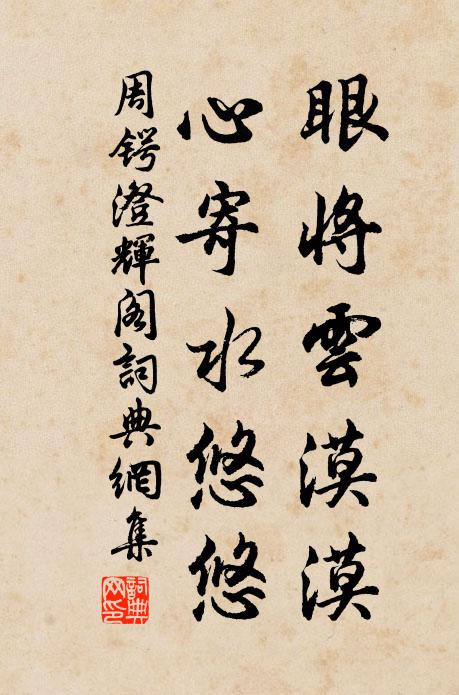 眼將雲漠漠
心寄水悠悠
周锷澄輝阁詞典網集
詞典
网印